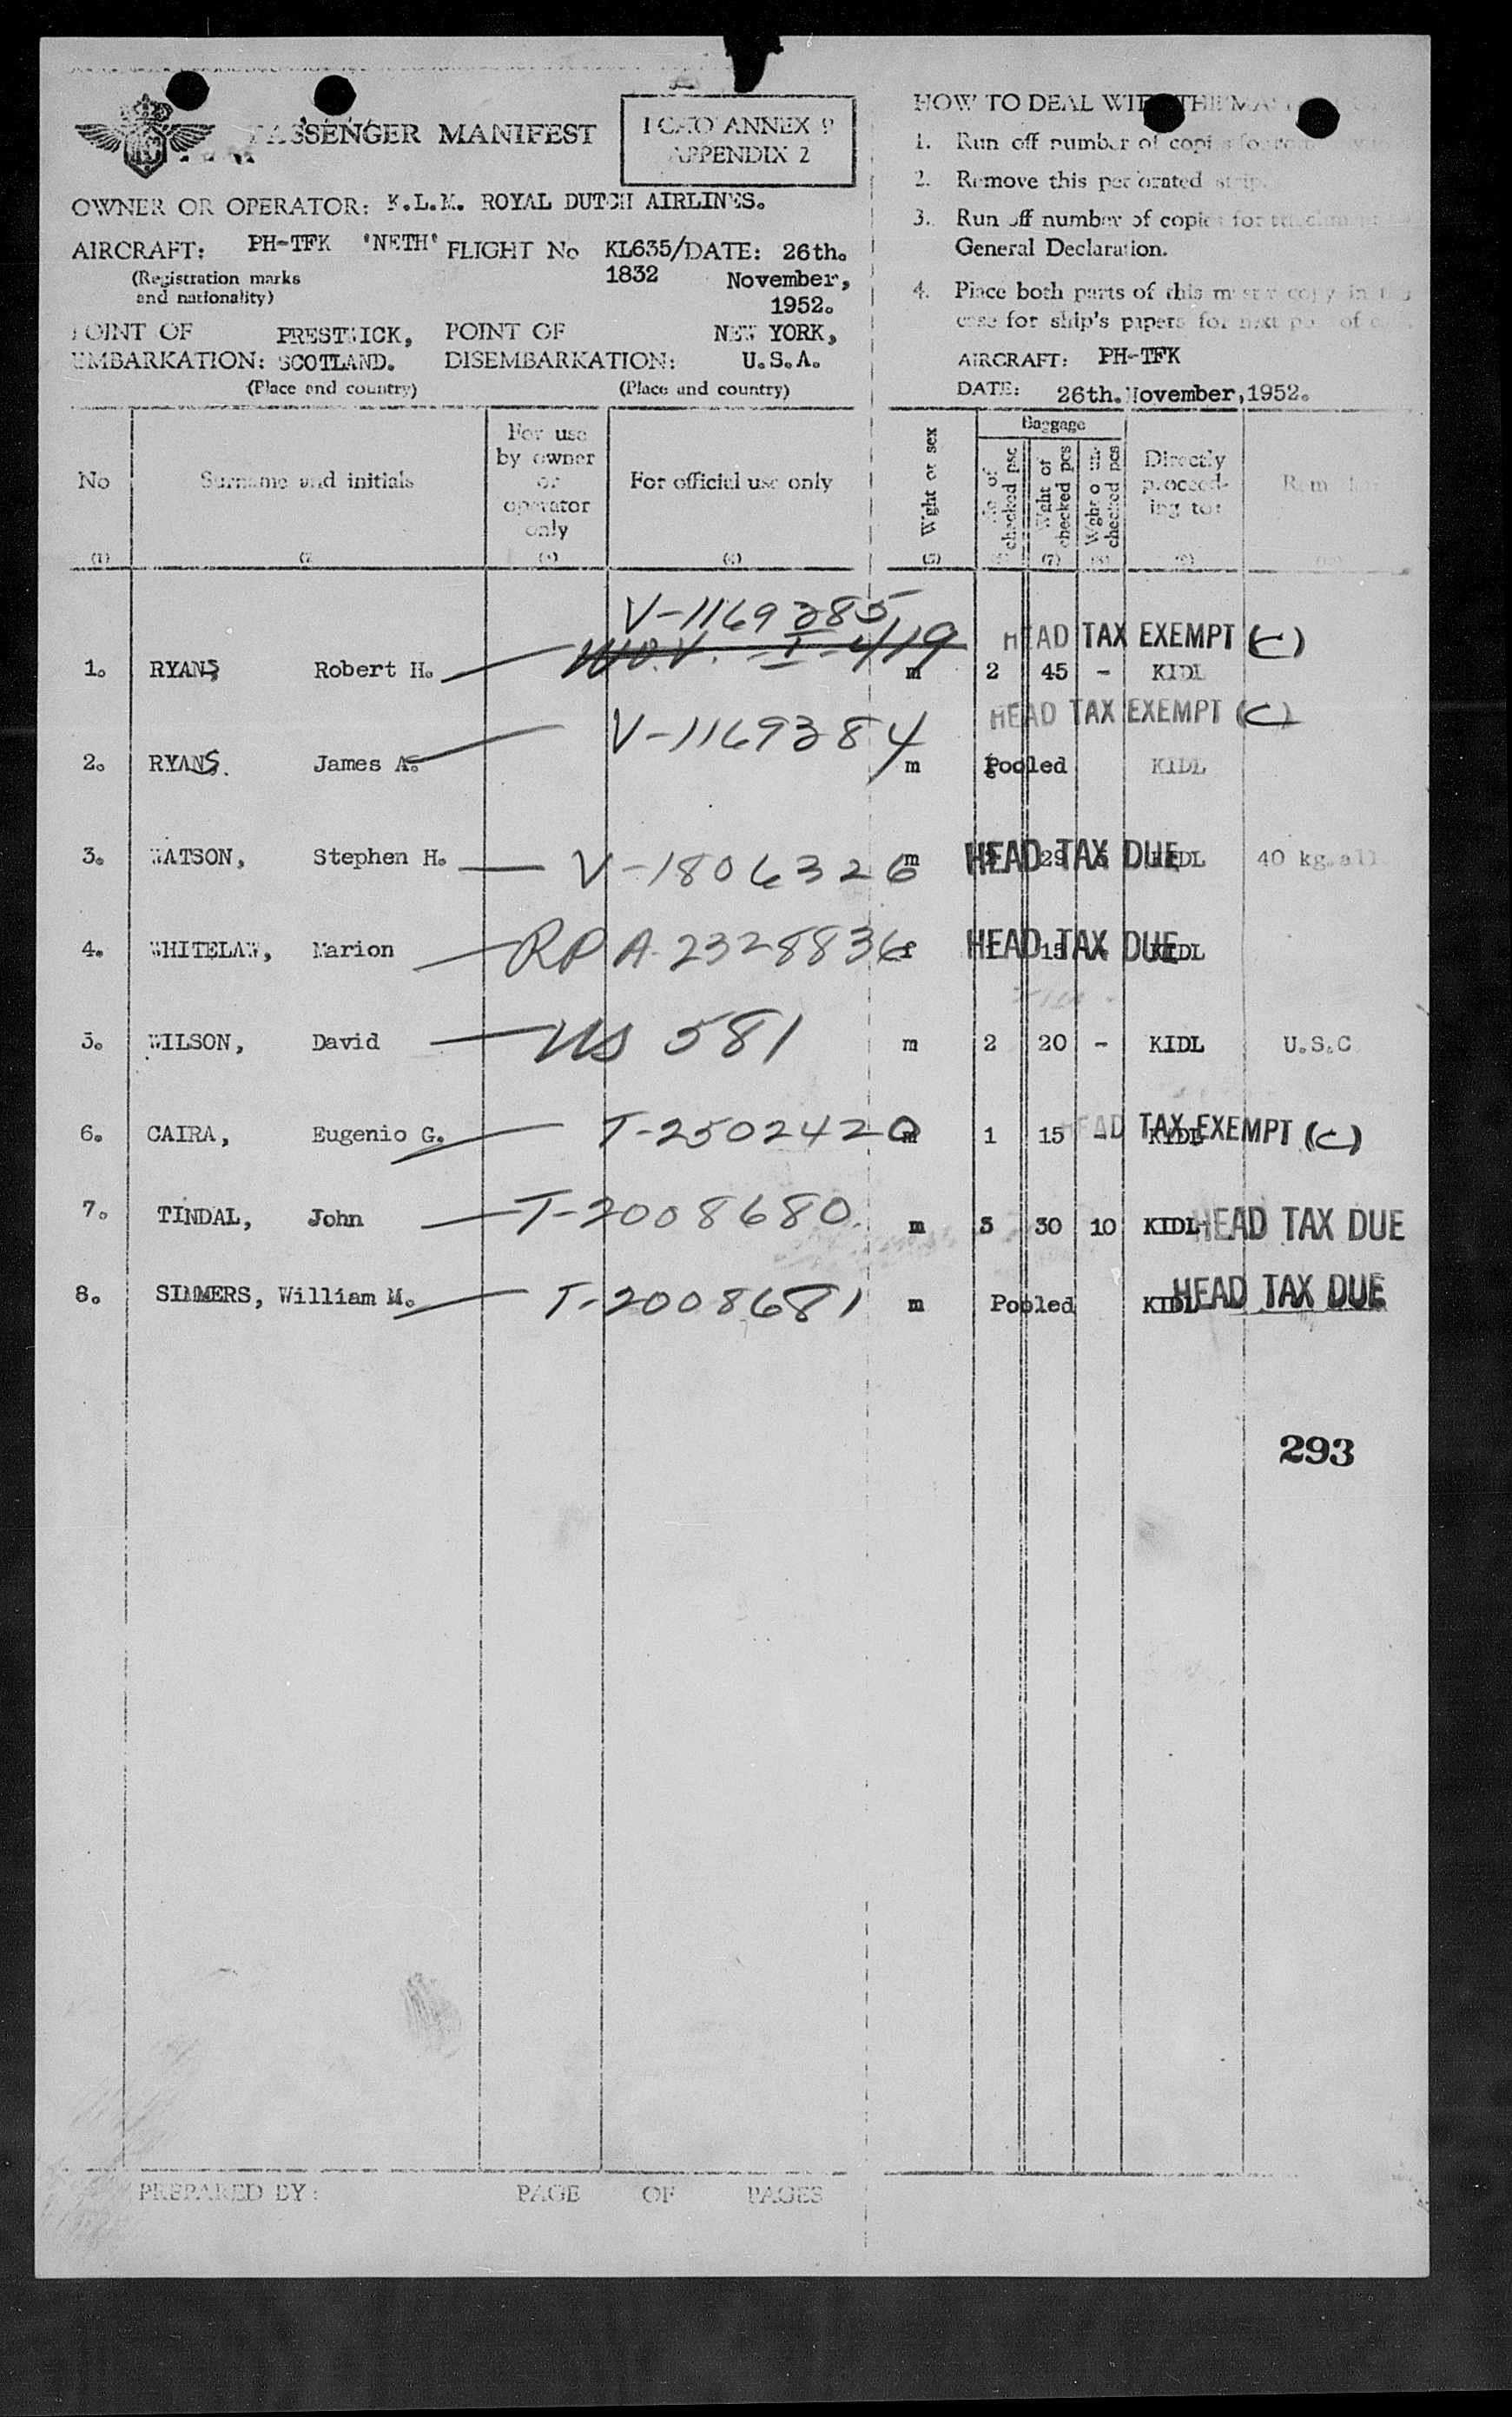 PASSENGER MANIFEST
ICAO ANNEX 9
APPENDIX 2
OWNER OR OPERATOR: K.L.M. ROYAL DUTCH AIRLINES.
AIRCRAFT: PH-TFK 'NETH' FLIGHT No KL635/ DATE: 26th.
(Registration marks 1832 November,
and nationality) 1952.
POINT OF PRESTWICK, POINT OF NEW YORK,
EMBARKATION: SCOTLAND. DISEMBARKATION: U.S.A.
(Place and country) (Place and country)
HOW TO DEAL WITH THE
1. Run off number of copies for
2. Remove this perforated strip.
3. Run off number of copies for
General Declaration.
4. Place both parts of this master copy in
case for ship's papers for next
AIRCRAFT: PH-TFK
DATE: 26th. November, 1952.
No
Surname and initials
For use
by owner
or
operator
only
For official use only
Wght or sex
Baggage
No of
checked psc
Wght of
checked pcs
Wght o un-
checked pcs
Directly
proceed-
ing to:
(1) (4) (5) (7)
V-1169385
HEAD TAX EXEMPT (C)
1. RYANS Robert H. m 2 45 - KIDL
HEAD TAX EXEMPT (C)
V-1169384
2. RYANS. James A. m Pooled KIDL
3. WATSON, Stephen H. V-1806326 m HEAD TAX DUE 29 KIDL 40 kg.all
4. WHITELAW, Marion RP A-2328836 f HEAD TAX DUE 1 15 KIDL
5. WILSON, David US 581 m 2 20 - KIDL U.S.C
6. CAIRA, Eugenio G. T-2502420 m 1 15 - KIDL HEAD TAX EXEMPT (C)
7. TINDAL, John T-2008680 m 3 30 10 KIDL HEAD TAX DUE
8. SIMMERS, William M. T-2008681 m Pooled KIDL HEAD TAX DUE
293
PREPARED BY: PAGE OF PAGES